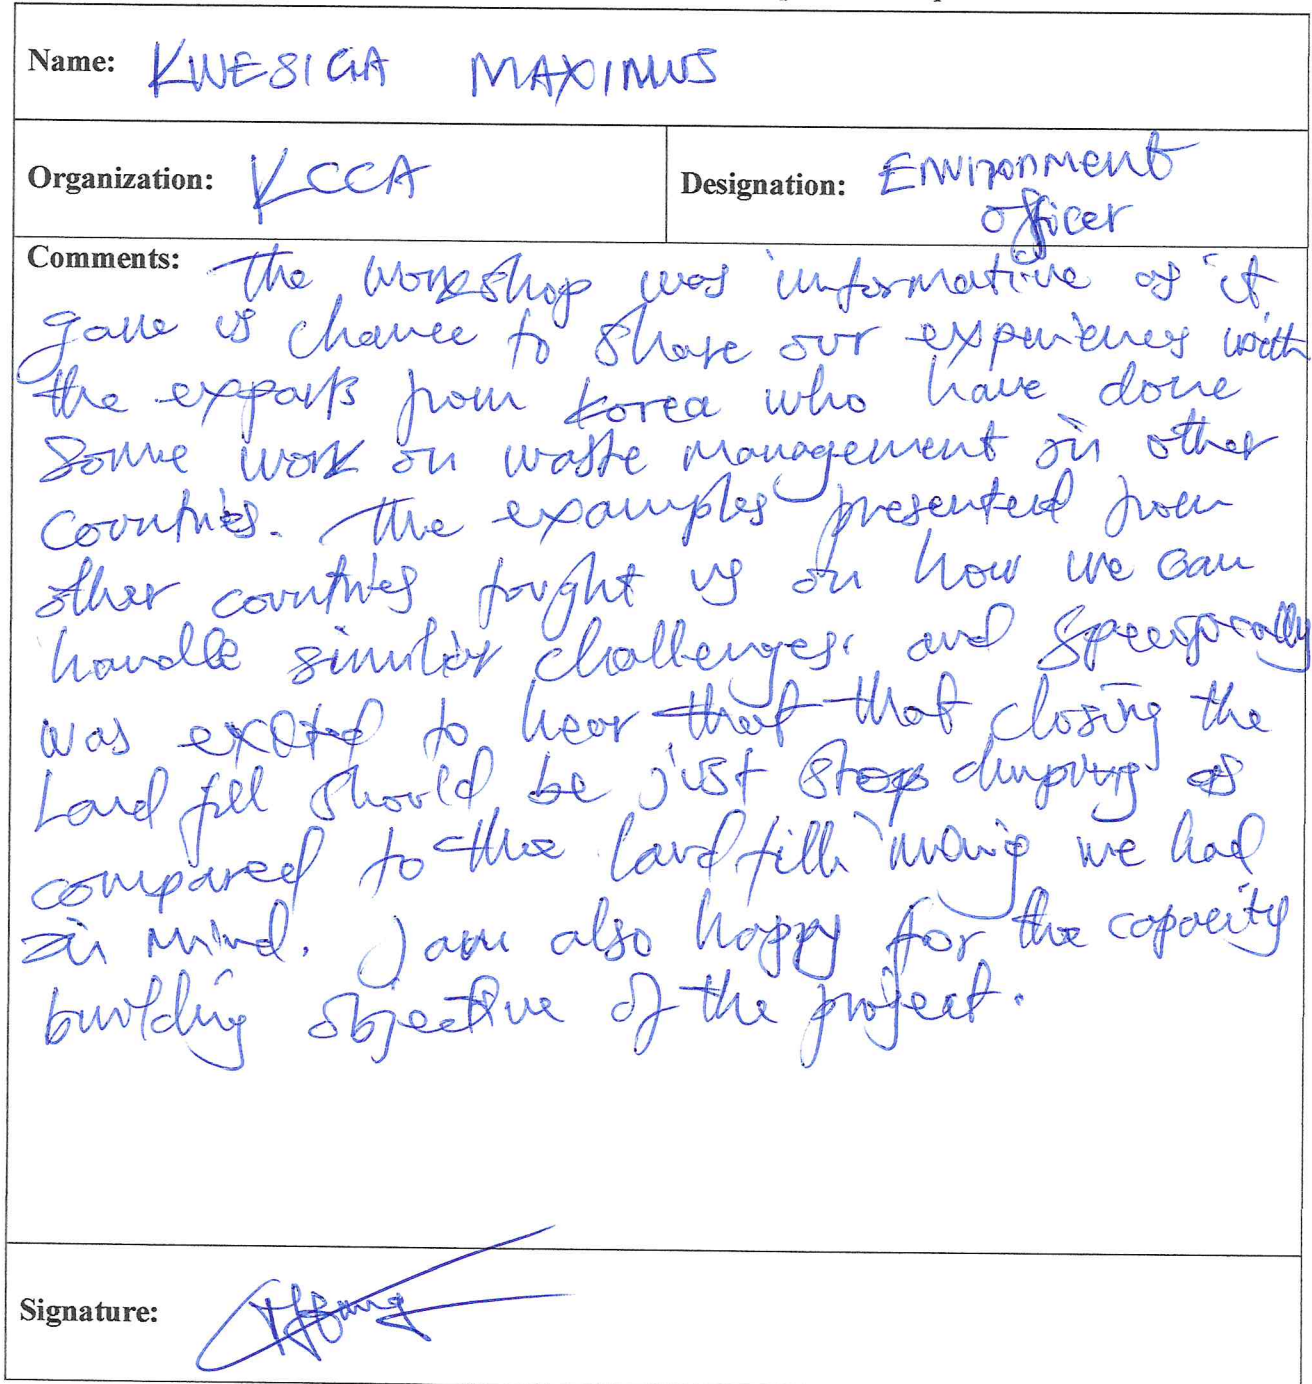 Name: KWESIGA MAXIMUS
Organization: KCCA
Designation: Environment
officer
Comments: The workshop was informative as it
gave us chance to share our experiences with
the experts from Korea who have done
some work on waste management in other
countries. The examples presented from
other countries taught us on how we can
handle similar challenges. and specifically
was excited to hear that that closing the
Land fill should be just stop dumping as
compared to the land fill mining we had
in mind. I am also happy for the capacity
building objective of the project.
Signature: